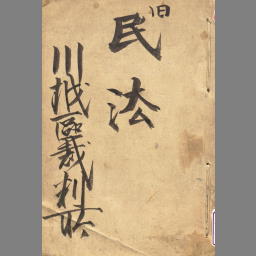 旧
民法
川越區裁判所